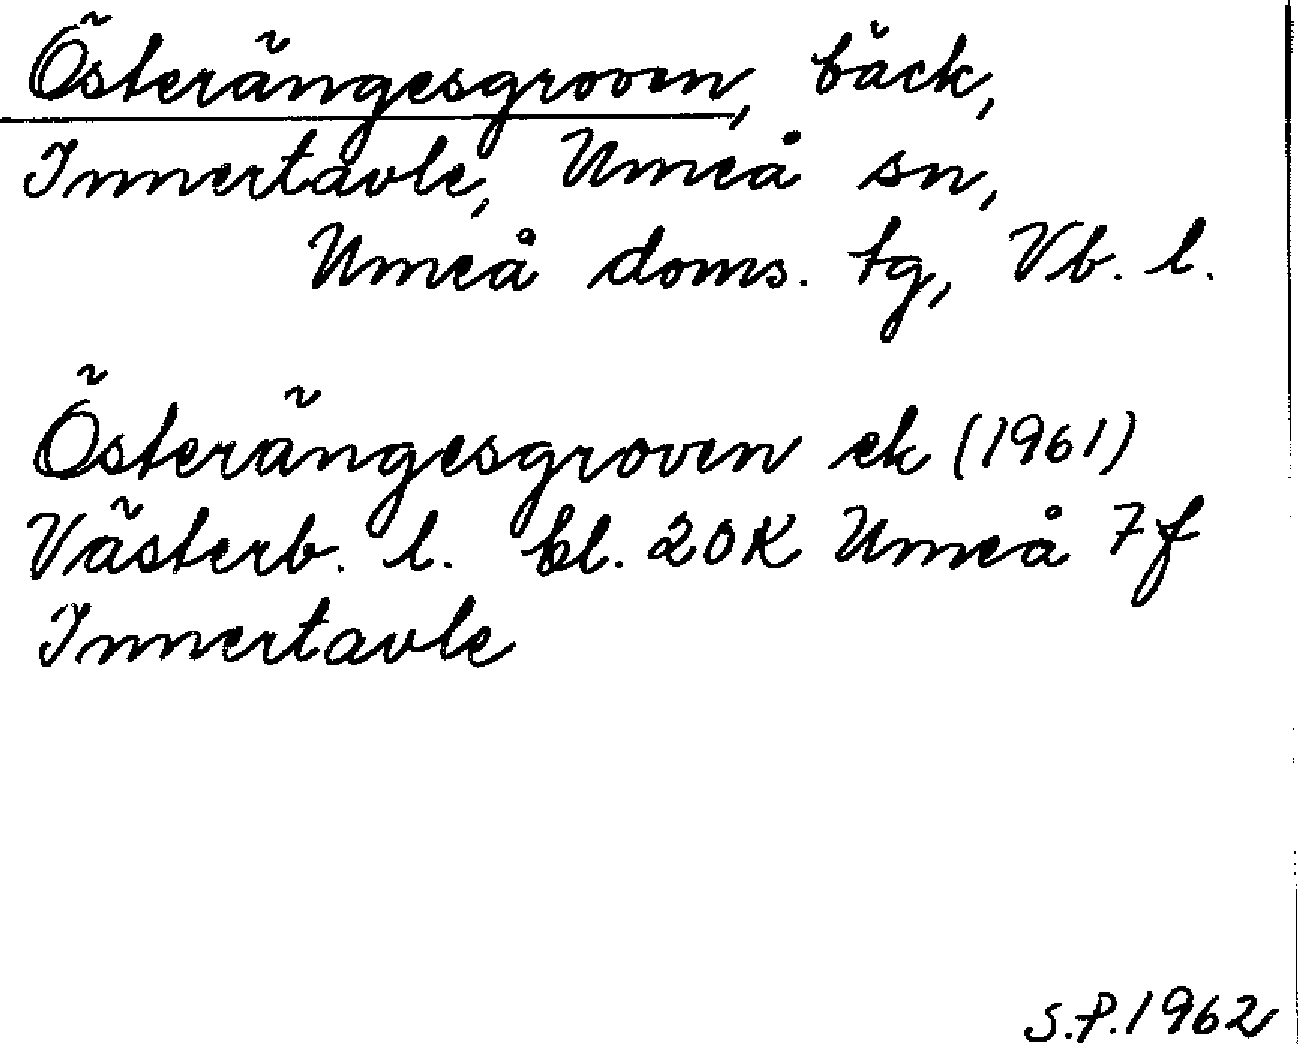 Österängesgroven, bäck,
Innertavle, Umeå sn,
Umeå doms. tg, Vb. l.
Österängesgroven ek (1961)
Västerb. l. bl. 20K Umeå 7f
Innertavle
S.P. 1962